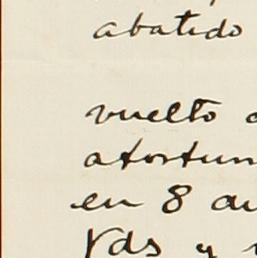 abatido
vuelto
afortun
en 8 au
Vds y